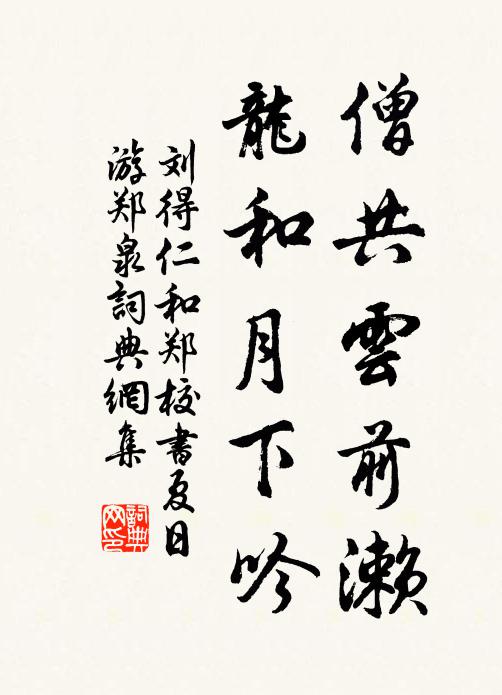 僧共雲前瀨
龍和月下吟
刘得仁和郑校書夏日
游郑泉詞典網集
詞典
网印